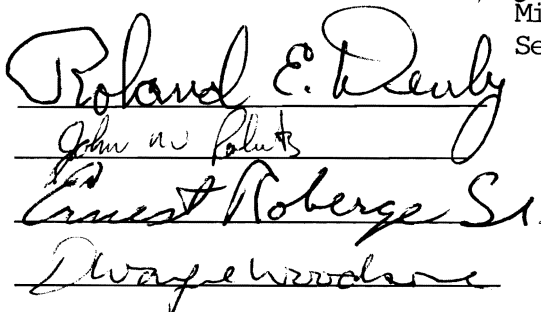 Mi
Se
Roland E.
John W Roberts
Ernest Roberge Sr.
Dwayne Woodsome